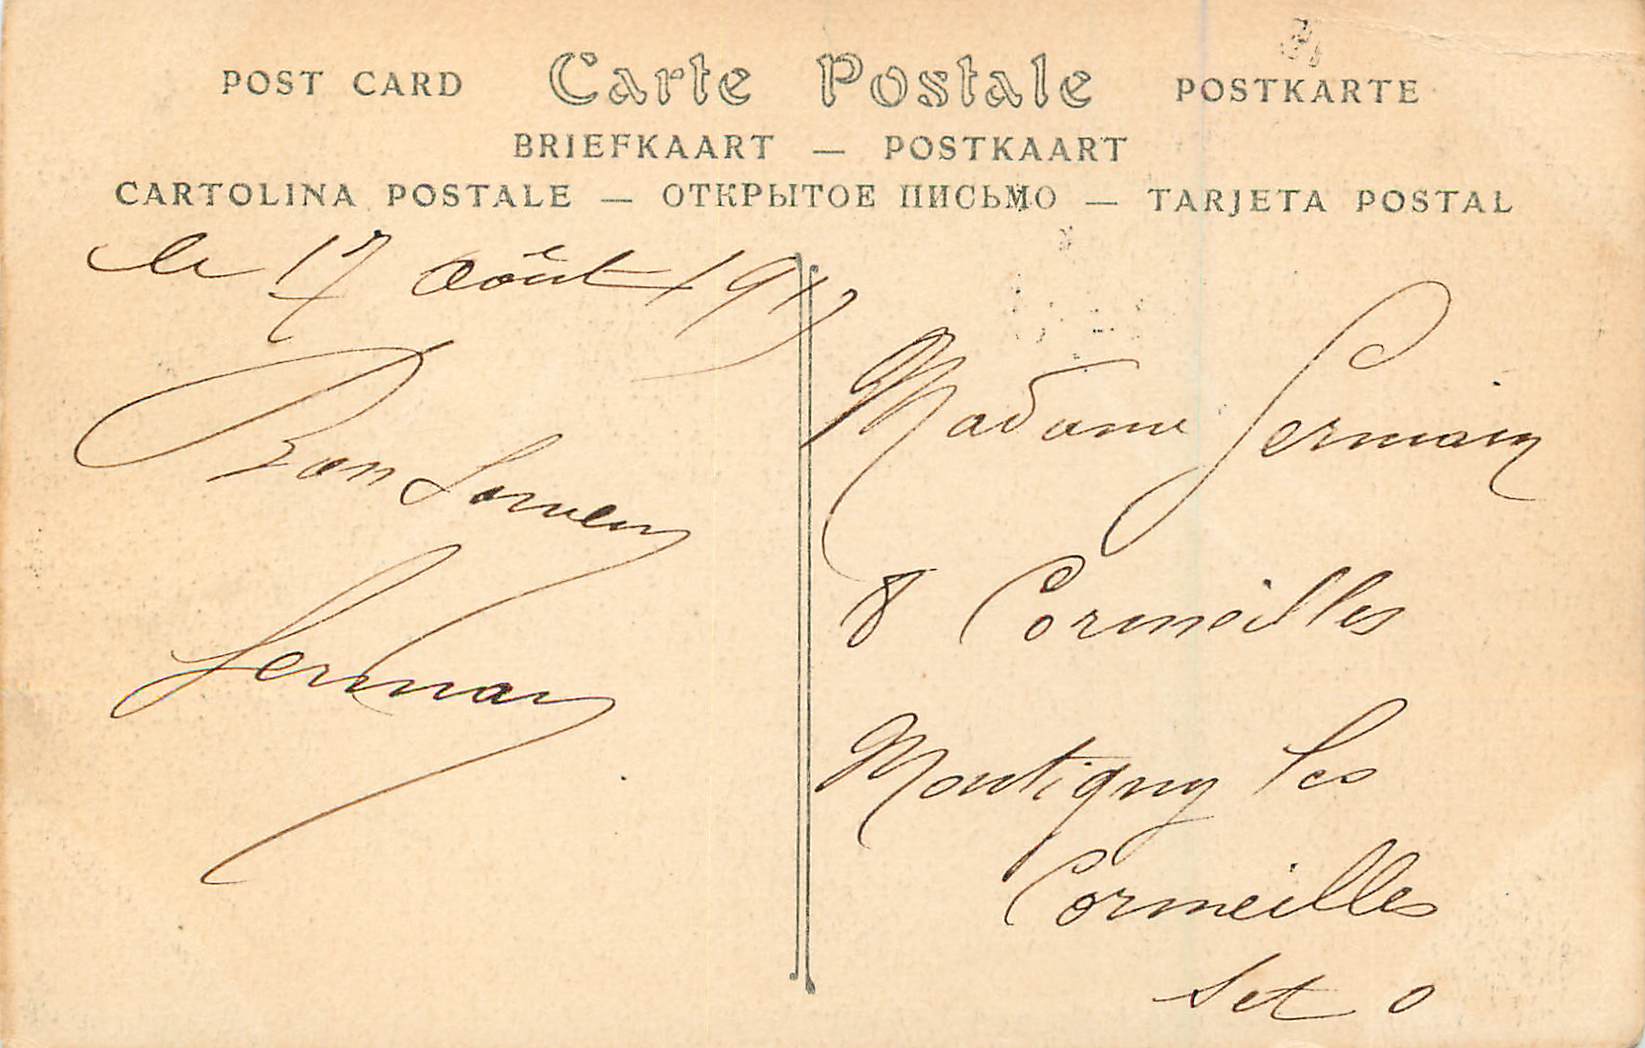 POST CARD Carte Postale POSTKARTE
BRIEFKAART — POSTKAART
CARTOLINA POSTALE — ОТКРЫТОЕ ПИСЬМО — TARJETA POSTAL
le 17 Août 191
Bon Souvenir
Germain
Madame Germain
8 Cormeilles
Montigny les
Cormeilles
S et O